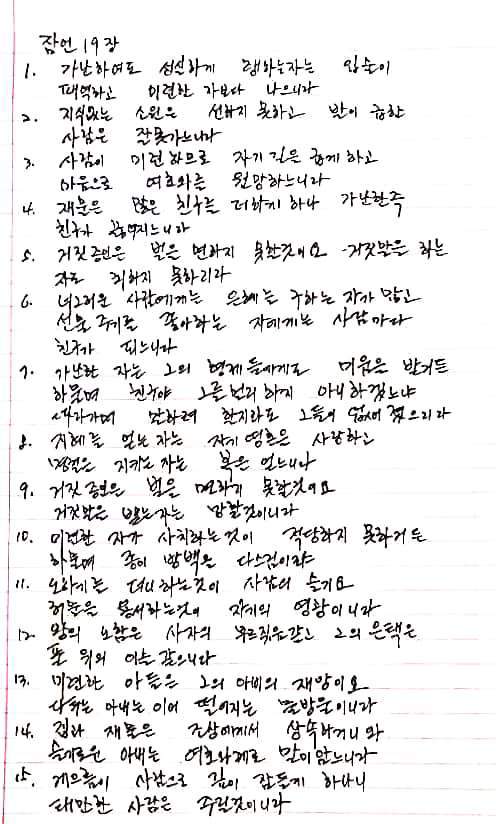 잠언 19장
1. 가난하여도 성실하게 행하는자는 입술이
패역하고 미련한 자보다 나으니라
2. 지식없는 소원은 선하지 못하고 발이 급한
사람은 잘못가느니라
3. 사람이 미련하므로 자기 길을 굽게 하고
마음으로 여호와를 원망하느니라
4. 재물은 많은 친구를 더하게 하나 가난한즉
친구가 끊어지느니라
5. 거짓증인은 벌을 면하지 못할것이요 거짓말을 하는
자도 피하지 못하리라
6. 너그러운 사람에게는 은혜를 구하는 자가 많고
선물 주기를 좋아하는 자에게는 사람마다
친구가 되느니라
7. 가난한 자는 그의 형제들에게도 미움을 받거든
하물며 친구야 그를 멀리 하지 아니하겠느냐
따라가며 말하려 할지라도 그들이 없어졌으리라
8. 지혜를 얻는 자는 자기 영혼을 사랑하고
명철을 지키는 자는 복을 얻느니라
9. 거짓 증인은 벌을 면하지 못할것이요
거짓말을 뱉는자는 망할것이니라
10. 미련한 자가 사치하는것이 적당하지 못하거든
하물며 종이 방백을 다스림이랴
11. 노하기를 더디하는것이 사람의 슬기요
허물을 용서하는것이 자기의 영광이니라
12. 왕의 노함은 사자의 부르짖음같고 그의 은택은
풀 위의 이슬 같으니라
13. 미련한 아들은 그의 아비의 재앙이요
다투는 아내는 이어 떨어지는 물방울이니라
14. 집과 재물은 조상에게서 상속하거니와
슬기로운 아내는 여호와께로 말미암느니라
15. 게으름이 사람으로 깊이 잠들게 하나니
태만한 사람은 주릴것이니라